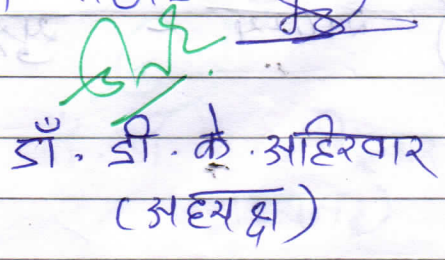 डॉ. डी. के. अहिरवार
(अध्यक्ष)